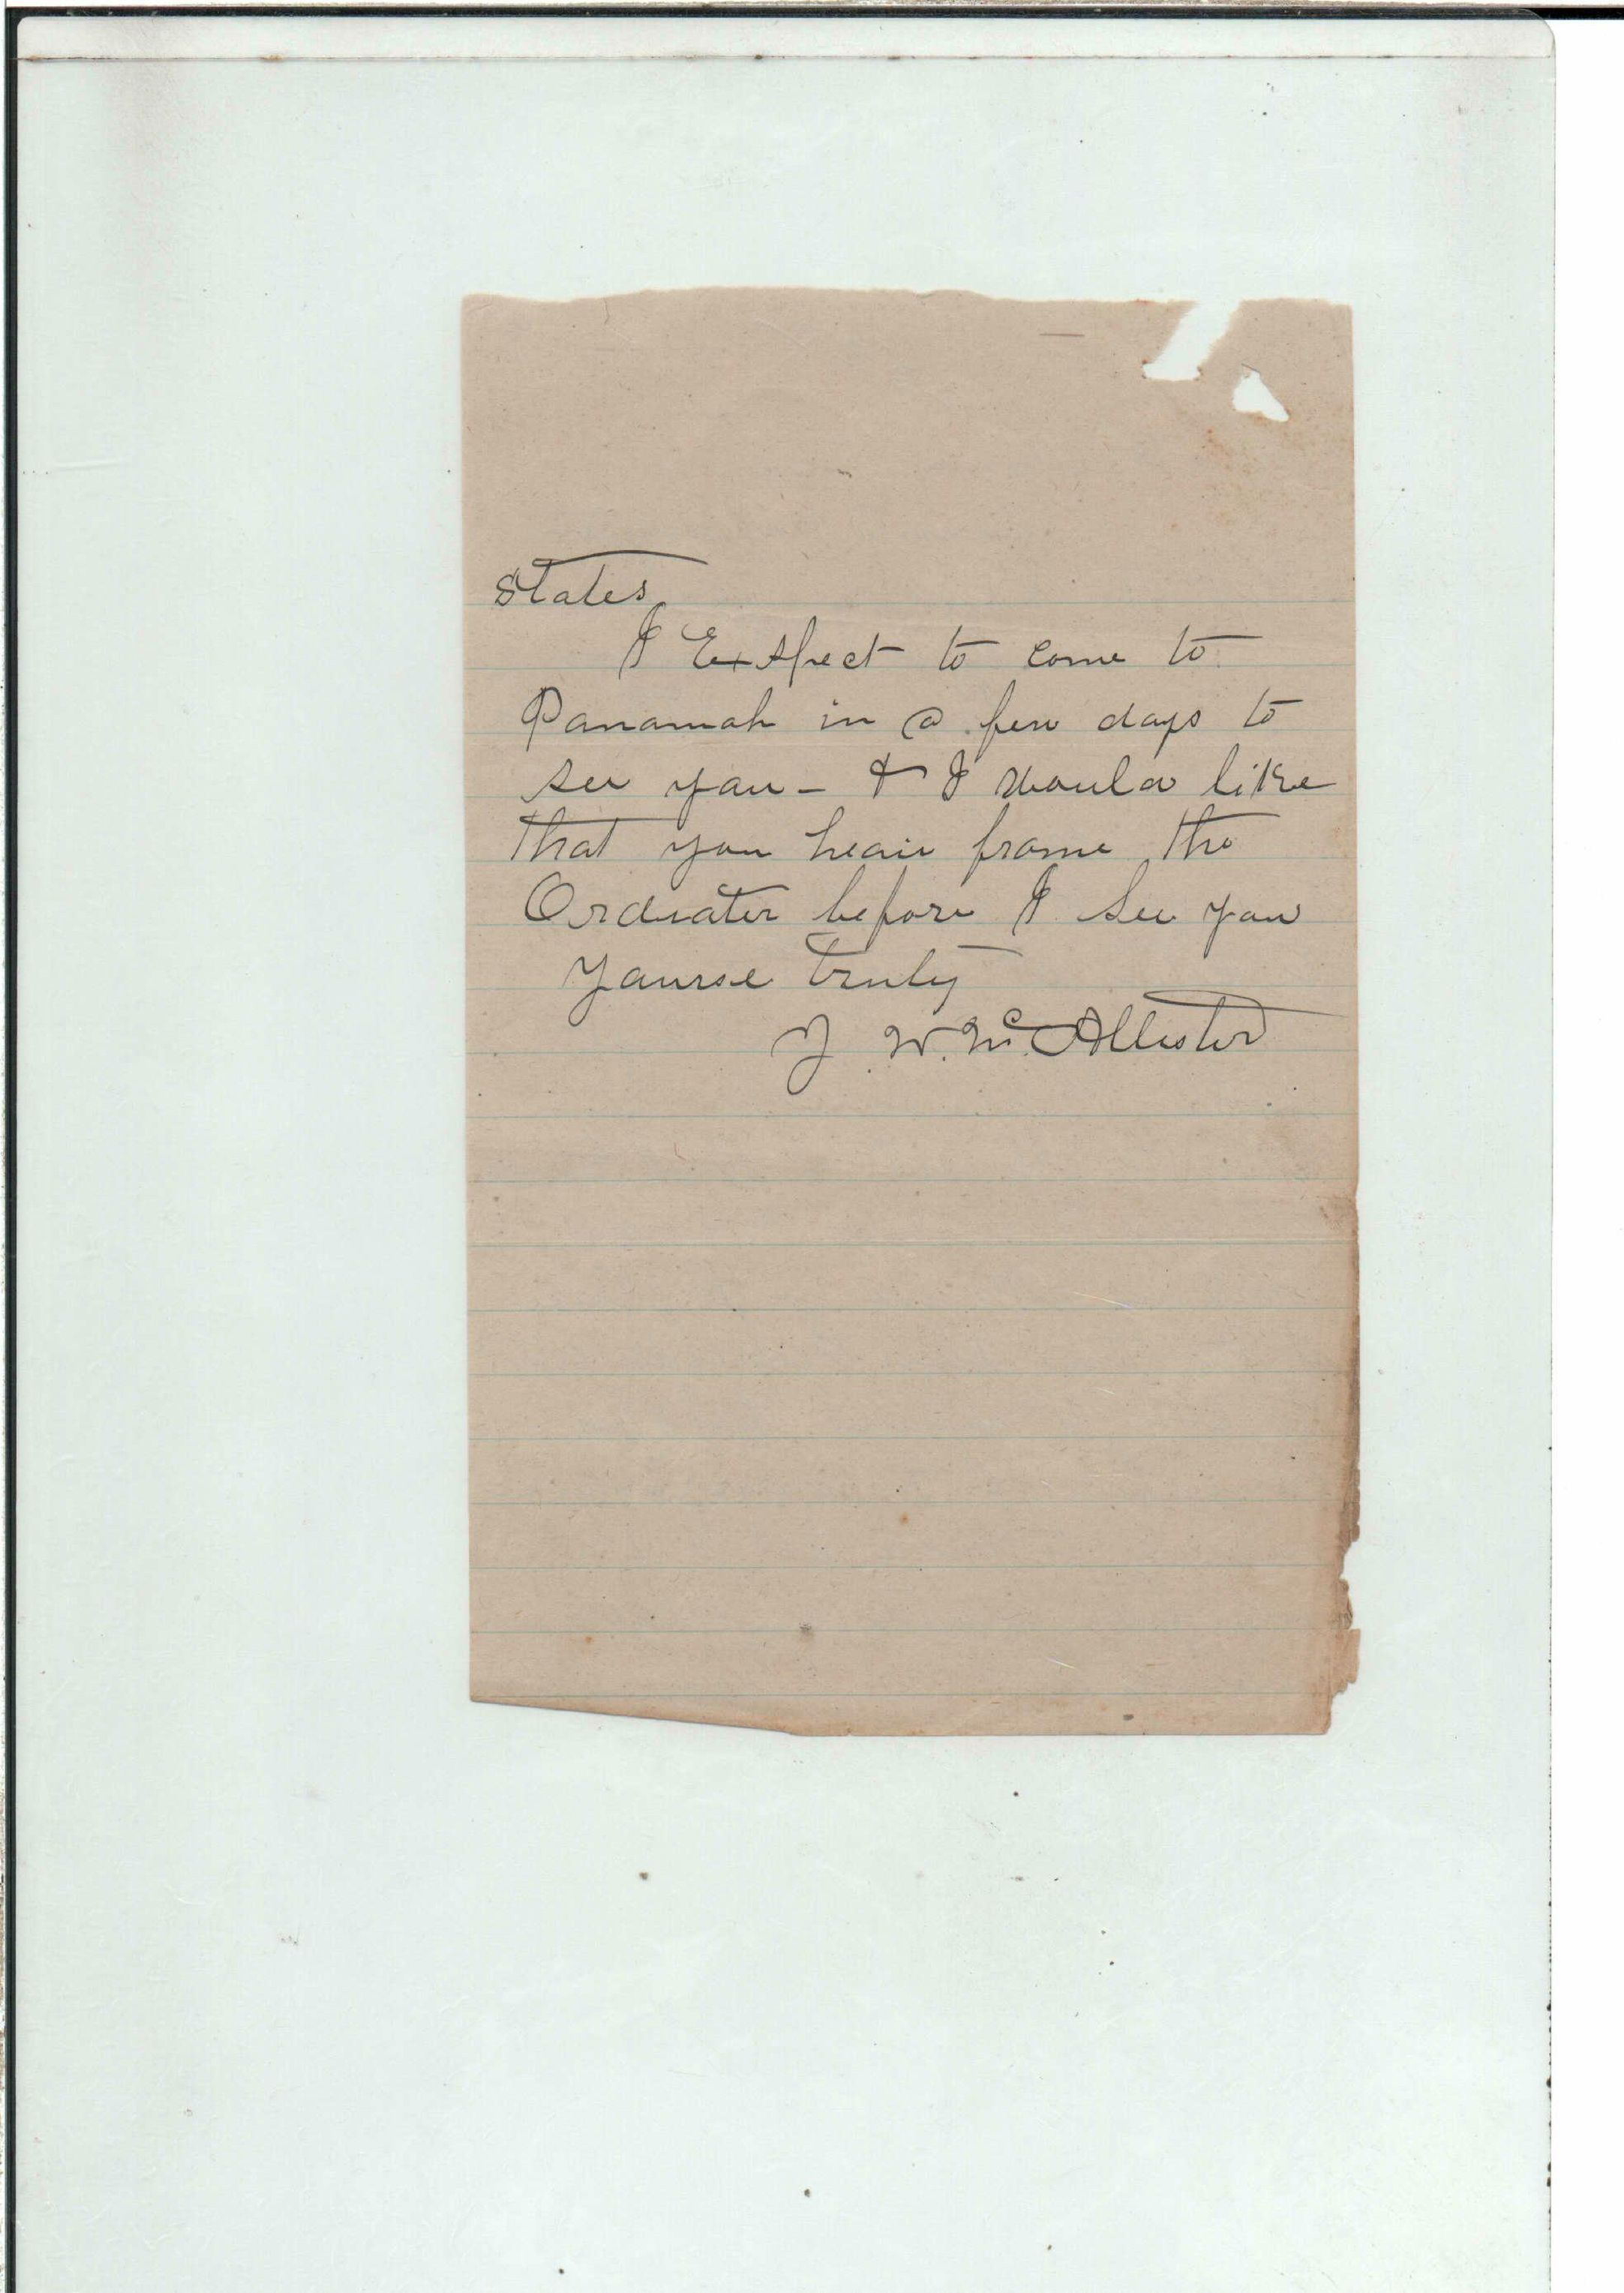 States
I Exspect to come to
Panamah in a few days to
see you - & I would like
that you heair frome the
before I see you
yourse truly
J. W. McAllister